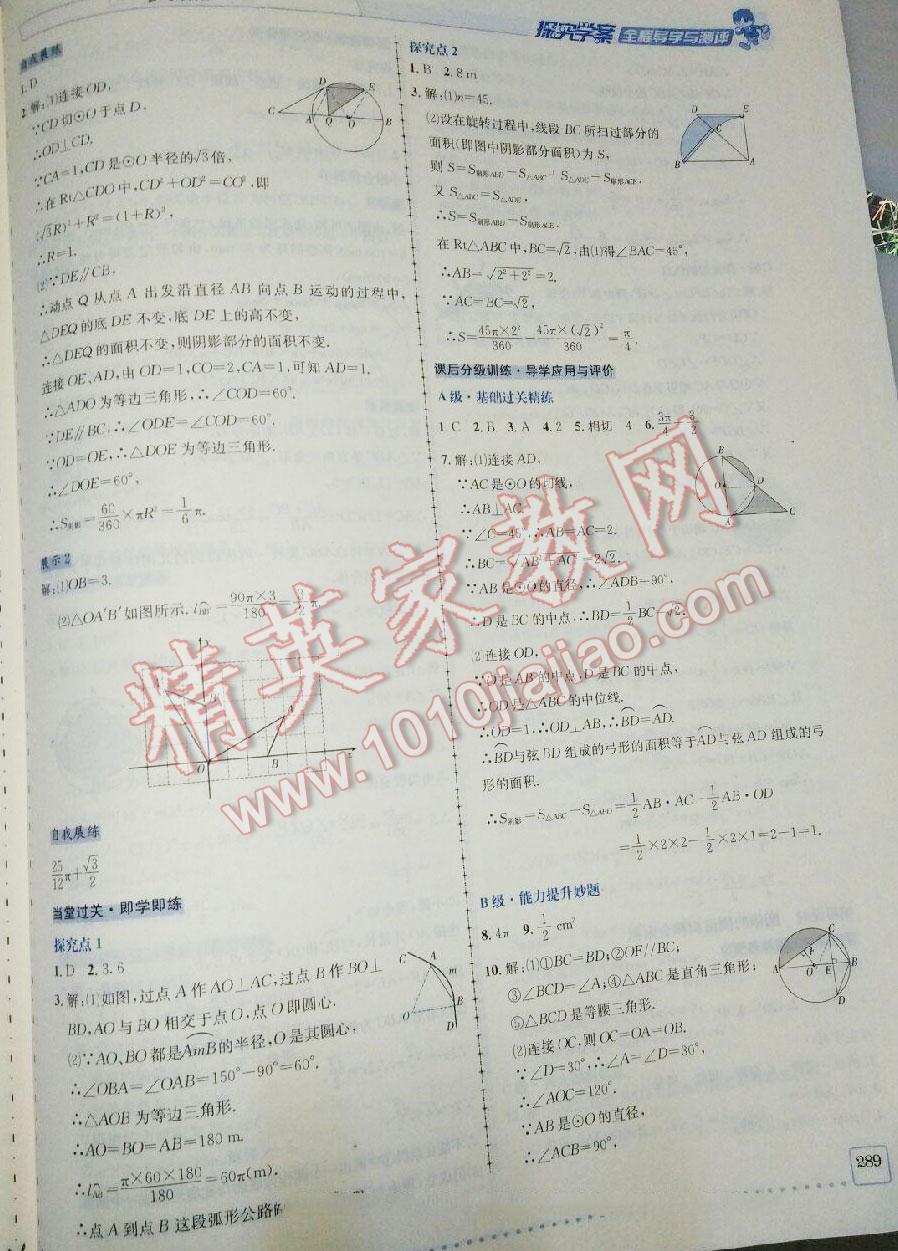 探究学案 全程导学与测评
自我展练
1. D
2. 解:(1)连接OD,
∵CD切⊙O于点D,
∴OD⊥CD.
∵CA=1,CD是⊙O半径的√3倍,
∴在Rt△CDO中,CD²+OD²=CO²,即
(√3R)²+R²=(1+R)²,
∴R=1.
(2)∵DE∥CB,
∴动点Q从点A出发沿直径AB向点B运动的过程中,
△DEQ的底DE不变,底DE上的高不变,
∴△DEQ的面积不变,则阴影部分的面积不变.
连接OE,AD,由OD=1,CO=2,CA=1,可知AD=1,
∴△ADO为等边三角形,∴∠COD=60°.
∵DE∥BC,∴∠ODE=∠COD=60°.
∵OD=OE,∴△DOE为等边三角形.
∴∠DOE=60°,
∴S阴影=60/360×πR²=1/6π.
展示2
解:(1)OB=3.
(2)△OA′B′如图所示,
=90π×3/180=3/2π.
自我展练
25/12π+√3/2
当堂过关·即学即练
探究点1
1. D 2. 3.6
3. 解:(1)如图,过点A作AO⊥AC,过点B作BO⊥
BD,AO与BO相交于点O,点O即圆心.
(2)∵AO,BO都是AmB的半径,O是其圆心,
∴∠OBA=∠OAB=150°-90°=60°.
∴△AOB为等边三角形.
∴AO=BO=AB=180 m.
∴l AB=π×60×180/180=60π(m).
∴点A到点B这段弧形公路的
探究点2
1. B 2. 8 m
3. 解:(1)n=45.
(2)设在旋转过程中,线段BC所扫过部分的
面积(即图中阴影部分面积)为S,
则S=S扇形ABD-S△ABC+S△ADE-S扇形ACE,
又S△ABC=S△ADE,
∴S=S扇形ABD-S扇形ACE.
在Rt△ABC中,BC=√2,由(1)得∠BAC=45°,
∴AB=√(2²+2²)=2.
∵AC=BC=√2,
∴S=45π×2²/360-45π×(√2)²/360=π/4.
课后分级训练·导学应用与评价
A级·基础过关精练
1. C 2. B 3. A 4. 2 5. 相切 4 6. 3π/4-3/2
7. 解:(1)连接AD.
∵AC是⊙O的切线,
∴AB⊥AC.
∵∠C=45°,∴AB=AC=2.
∴BC=√(AB²+AC²)=2√2.
∵AB是⊙O的直径,∴∠ADB=90°,
∴D是BC的中点,∴BD=1/2BC=√2.
(2)连接OD,
∵O是AB的中点,D是BC的中点,
∴OD是△ABC的中位线.
∴OD=1.∴OD⊥AB,∴BD=AD.
∴BD与弦BD组成的弓形的面积等于AD与弦AD组成的弓
形的面积.
∴S阴影=S△ABC-S△ABD=1/2AB·AC-1/2AB·OD
=1/2×2×2-1/2×2×1=2-1=1.
B级·能力提升妙题
8. 4π 9. 1/2 cm²
10. 解:(1)①BC=BD;②OF∥BC;
③∠BCD=∠A;④△ABC是直角三角形;
⑤△BCD是等腰三角形.
(2)连接OC,则OC=OA=OB.
∵∠D=30°,∴∠A=∠D=30°,
∴∠AOC=120°.
∵AB是⊙O的直径,
∴∠ACB=90°,
289
精英家教网
www.1010jiajiao.com